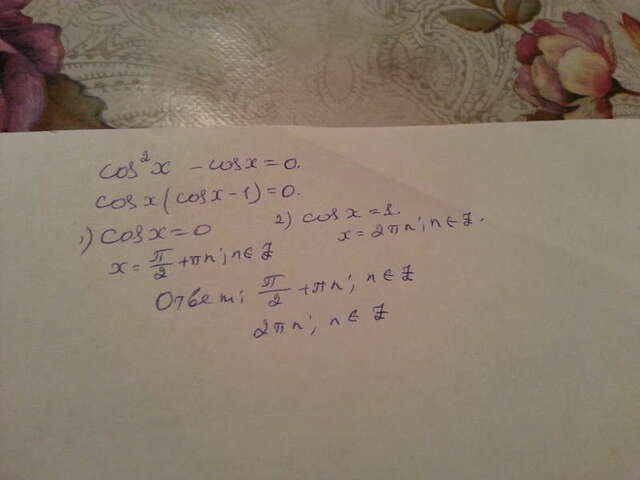 cos²x - cosx = 0.
cosx(cosx-1)=0.
1) cosx=0 2) cosx=1.
x = π/2 + πn; n∈Z x = 2πn; n∈Z.
Ответ: π/2 + πn; n∈Z
2πn; n∈Z